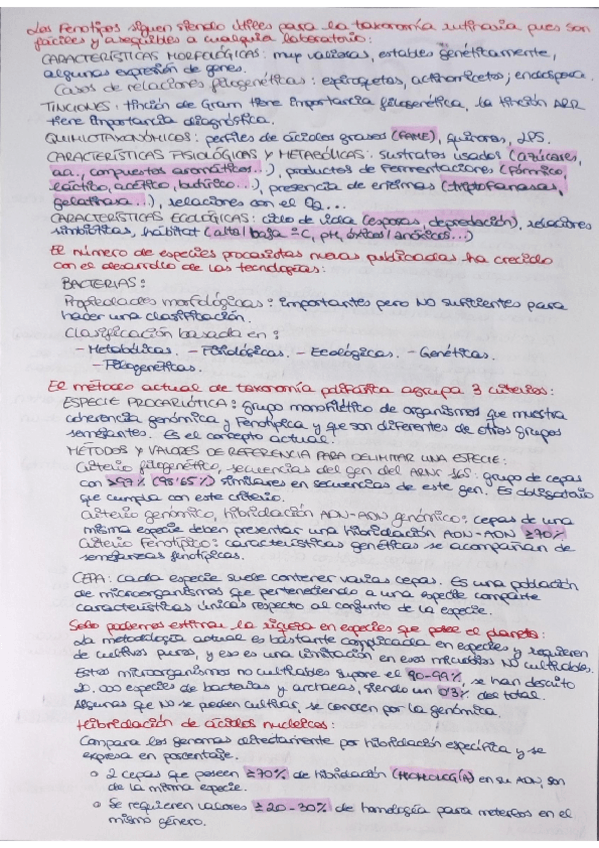 Los Fenotipos siguen siendo útiles para la taxonomía rutinaria pues son
fáciles y asequibles a cualquier laboratorio:
CARACTERÍSTICAS MORFOLÓGICAS: muy valiosas, estables genéticamente,
algunas expresión de genes.
Casos de relaciones filogenéticas: espiroquetas, actinomicetos; endospora.
TINCIONES: tinción de Gram tiene importancia filogenética, la tinción AAR
tiene importancia diagnóstica.
QUIMIOTAXONÓMICOS: perfiles de ácidos grasos (FAME), quinonas, LPS.
CARACTERÍSTICAS FISIOLÓGICAS Y METABÓLICAS: sustratos usados (azúcares,
aa., compuestos aromáticos...), productos de fermentaciones (fórmico,
láctico, acético, butírico...), presencia de enzimas (triptofanasas,
gelatinasa...), relaciones con el O2...
CARACTERÍSTICAS ECOLÓGICAS: ciclo de vida (esporas, depredación), relaciones
simbióticas, hábitat (alta/baja ºC, pH, óxicos/anóxicos...)
El número de especies procariotas nuevas publicadas ha crecido
con el desarrollo de las tecnologías:
BACTERIAS:
Propiedades morfológicas: importantes pero NO suficientes para
hacer una clasificación.
Clasificación basada en:
- Metabólicas. - Fisiológicas. - Ecológicas. - Genéticas.
- Filogenéticas.
El método actual de taxonomía polifásica agrupa 3 criterios:
ESPECIE PROCARIÓTICA: grupo monofilético de organismos que muestra
coherencia genómica y fenotípica y que son diferentes de otros grupos
semejantes. Es el concepto actual.
MÉTODOS Y VALORES DE REFERENCIA PARA DELIMITAR UNA ESPECIE:
Criterio filogenético, secuencias del gen del ARNr 16S: grupo de cepas
con >97% (98'65%) similares en secuencias de este gen. Es obligatorio
que cumpla con este criterio.
Criterio genómico, hibridación ADN-ADN genómico: cepas de una
misma especie deben presentar una hibridación ADN-ADN ≥70%
Criterio Fenotípico: características genéticas se acompañan de
semejanzas fenotípicas.
CEPA: cada especie suele contener varias cepas. Es una población
de microorganismos que perteneciendo a una especie comparte
características únicas respecto al conjunto de la especie.
Solo podemos estimar la riqueza en especies que posee el planeta:
La metodología actual es bastante complicada en especies y requieren
de cultivos puros, y eso es una limitación en esos microbios NO cultivables.
Estos microorganismos no cultivables supone el 90-99%, se han descrito
20.000 especies de bacterias y archaeas, siendo un 0'3% del total.
Algunas que NO se pueden cultivar, se conocen por la genómica.
Hibridación de ácidos nucleicos:
Compara los genomas directamente por hibridación específica y se
expresa en porcentaje.
o 2 cepas que poseen ≥70% de hibridación (HOMOLOGÍA) en su ADN, son
de la misma especie.
o Se requieren valores ≥20-30% de homología para meterlos en el
mismo género.